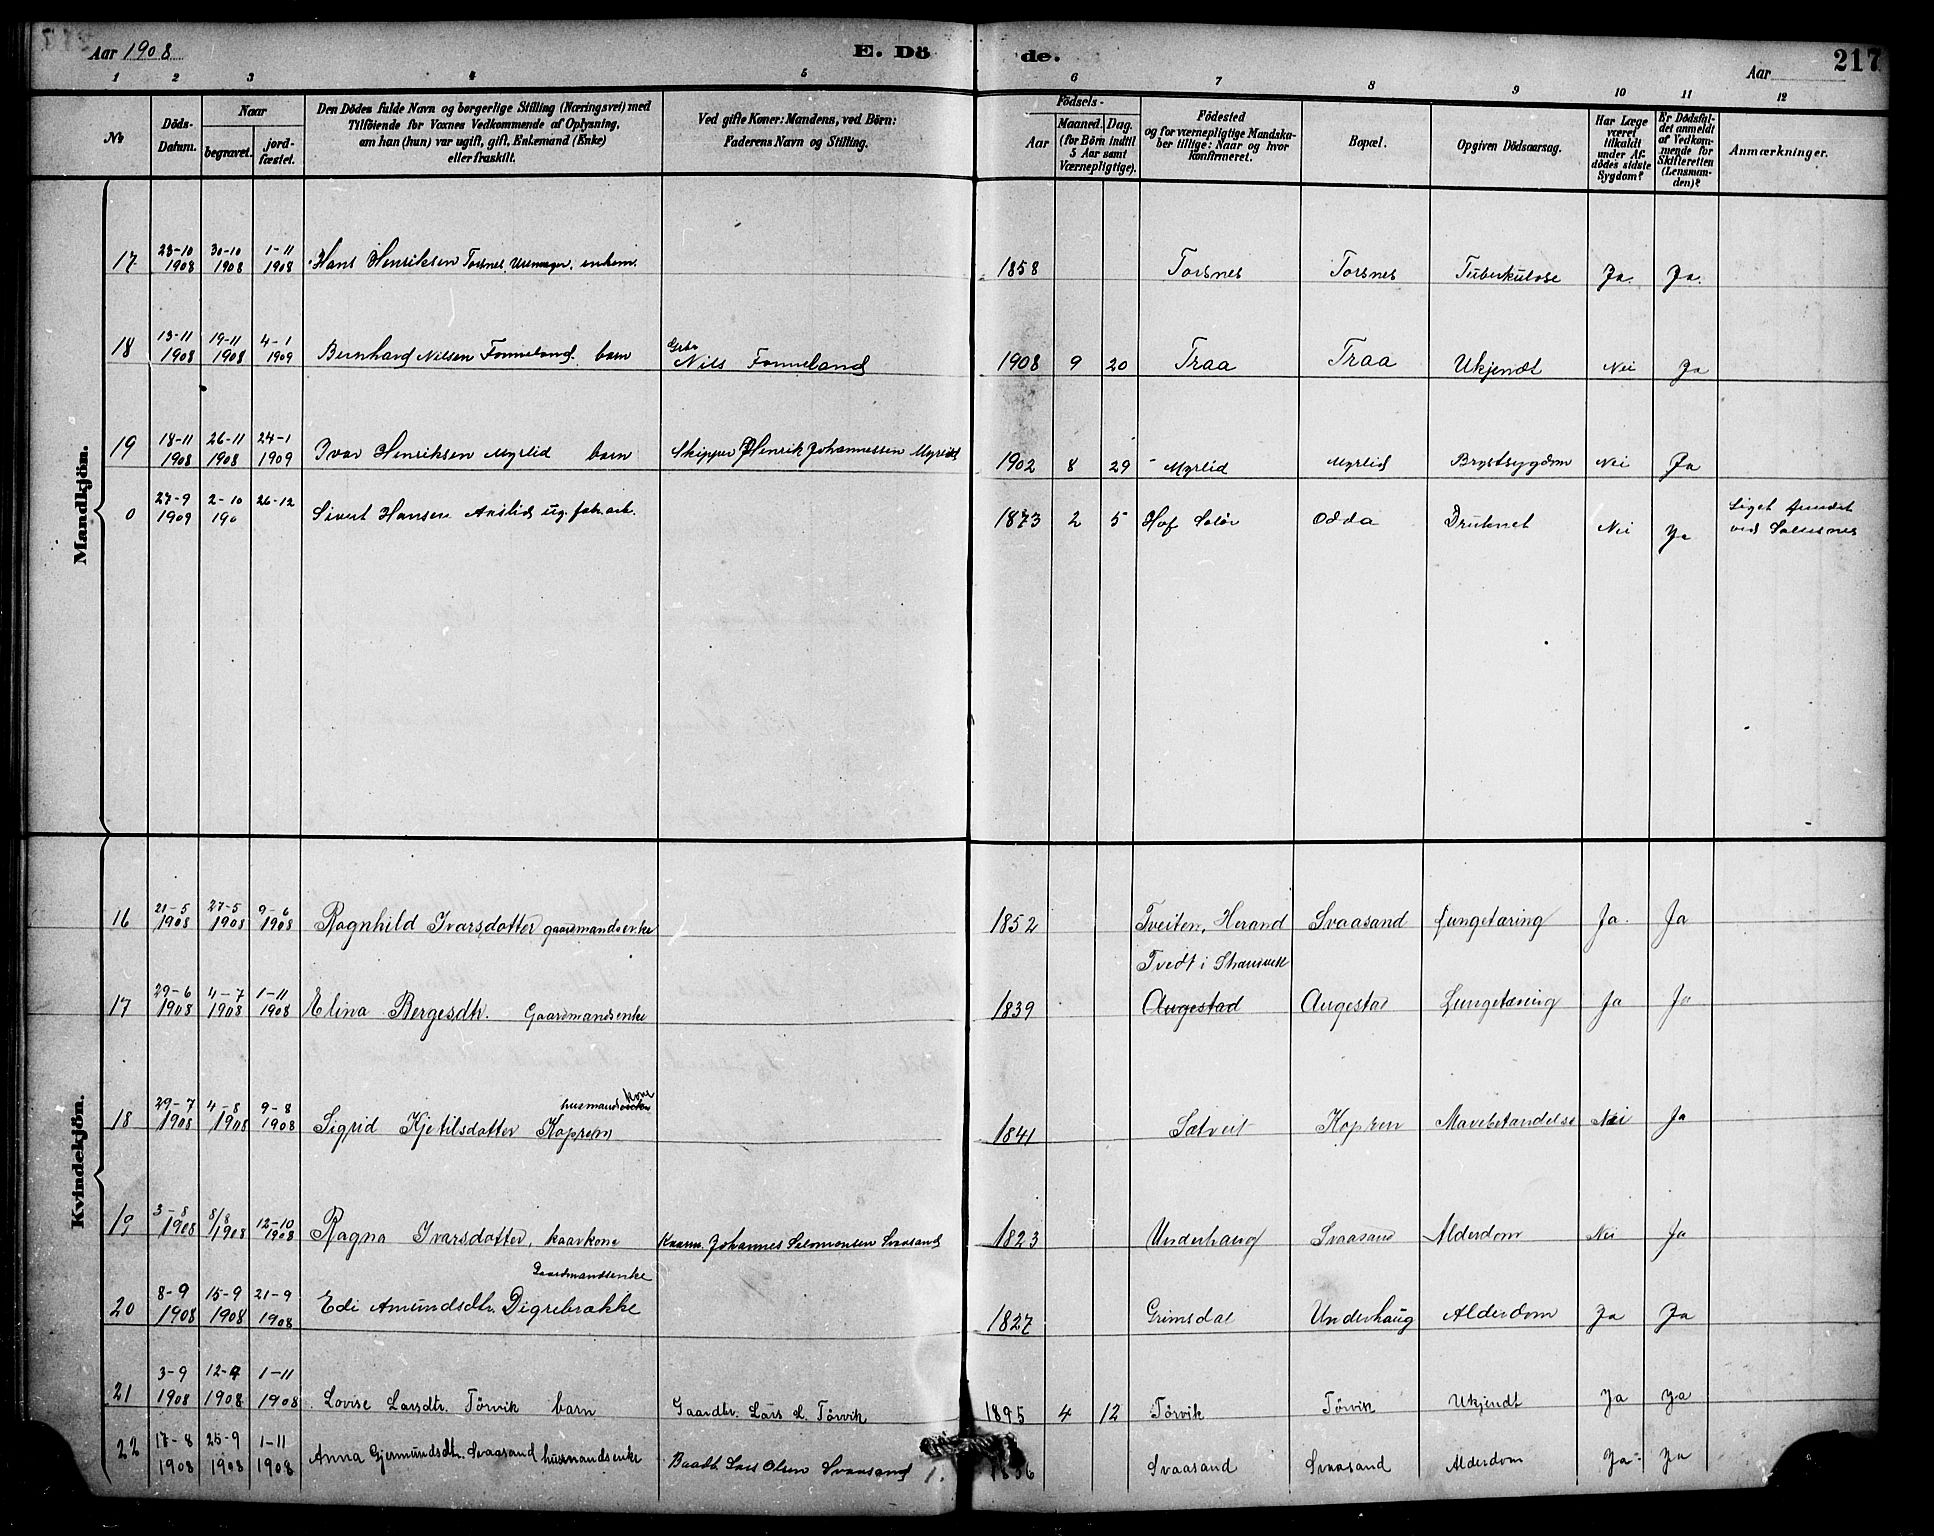 Aar 1908
E. Dö
de.
Aar
217
1 2 3 4 5 6 7 8 9 10 11 12
No
Döds-
Datum.
Naar
begravet.
jord-
fæstet.
Den Dödes fulde Navn og borgerlige Stilling (Næringsvei) med
Tilföiende for Voxnes Vedkommende af Oplysning,
om han (hun) var ugift, gift, Enkemand (Enke)
eller fraskilt.
Ved gifte Koner: Mandens, ved Börn:
Faderens Navn og Stilling.
Födsels-
Aar
Maaned. Dag.
(for Börn indtil
5 Aar samt
Værnepligtige).
Födested
og for værnepligtige Mandska-
ber tillige: Naar og hvor
konfirmeret.
Bopæl.
Opgiven Dödsaarsag.
Har Læge
været
tilkaldt
under Af-
dödes sidste
Sygdom?
Er Dödsfal-
det anmeldt
af Vedkom-
mende for
Skifteretten
(Lensman-
den)?
Anmærkninger.
Mandkjön.
17 23-10 1908 30-10 1908 1-11 1908 Hans Henriksen Torsnes, Urmager, enkem. 1858 Torsnes Torsnes Tuberkulose Ja. Ja.
18 13-11 1908 19-11 1908 4-1 1909 Bernhard Nilsen Fonneland. barn Grbr Nils Fonneland 1908 9 20 Traa Traa Ukjendt Nei Ja
19 18-11 1908 26-11 1908 24-1 1909 Ivar Henriksen Myrlid barn Skipper Henrik Johannessen Myrlid 1902 8 29 Myrlid Myrlid Brystsygdom Nei Ja
0 27-9 1909 2-10 190 26-12 Sivert Hansen Aaslid, ug. fabr.arb. 1873 2 5 Hof Solör Odda Druknet Nei Ja Liget fundet
ved
Kvindekjön.
16 21-5 1908 27-5 1908 9-6 1908 Ragnhild Ivarsdotter gaardmandsenke 1852 Tveiten, Herand Svaasand Lungetæring Ja Ja
Tvedt i Strandeb
17 29-6 1908 4-7 1908 1-11 1908 Elina Bergesdtr. Gaardmandsenke 1839 Augestad Augestad Lungetæring Ja Ja
kone
husmandsenke
18 29-7 1908 4-8 1908 9-8 1908 Sigrid Kjetilsdotter Kopren 1841 Sætveit Kopren Mavebetændelse Nei Ja
19 3-8 1908 8/8 1908 12-10 1908 Ragna Ivarsdotter, kaarkone Kaarm. Johannes Salomonsen Svaasand 1823 Underhaug Svaasand Alderdom Nei Ja
Gaardmandsenke
20 8-9 1908 15-9 1908 21-9 1908 Edi Amundsdtr. Digrebrække 1827 Grimsdal Underhaug Alderdom Ja Ja
21 3-9 1908 12-9 1908 1-11 1908 Lovise Larsdtr. Törvik barn Gaardbr. Lars L. Törvik 1895 4 12 Törvik Törvik Ukjendt Ja Ja
22 17-8 1908 25-9 1908 1-11 1908 Anna Gjermundsdtr. Svaasand husmandsenke Baadb Lars Olsen Svaasand Svaasand Svaasand Alderdom Ja Ja